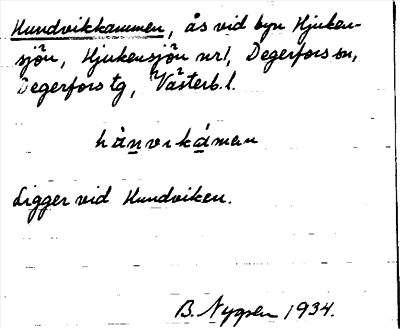 Hundvikkammen, ås vid byn Hjuken-
sjön, Hjukensjön nr1, Degerfors sn,
Degerfors tg, Västerb. l.
hànvikáman
Ligger vid Hundviken.
B. Nygren 1934.